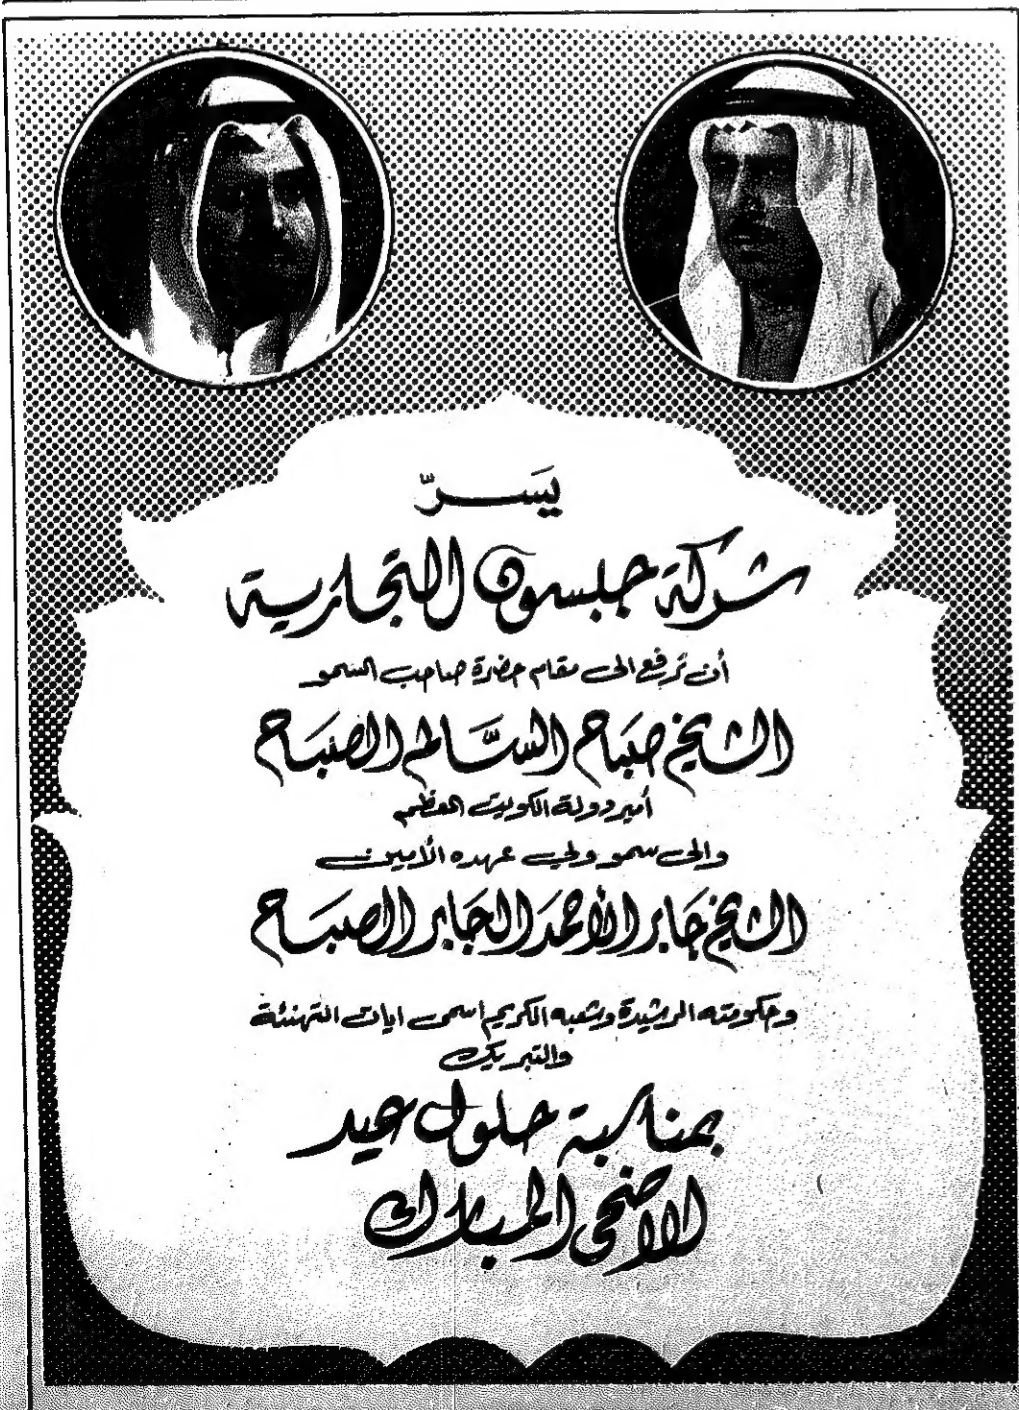 يَســـرّ
شركة جلسون التجارية
أن ترفع الى مقام حضرة صاحب السمو
الشيخ صباح السَّالم الصباح
أمير دولة الكويت المعظم
والى سمو ولي عهده الأمين
الشيخ جَابر الأحمَد الجَابر الصبَاح
وحكومته الرشيدة وشعبه الكريم اسمى ايات التهنئة
والتبريك
بمناسبة حلول عيد
الاضحى المبارك